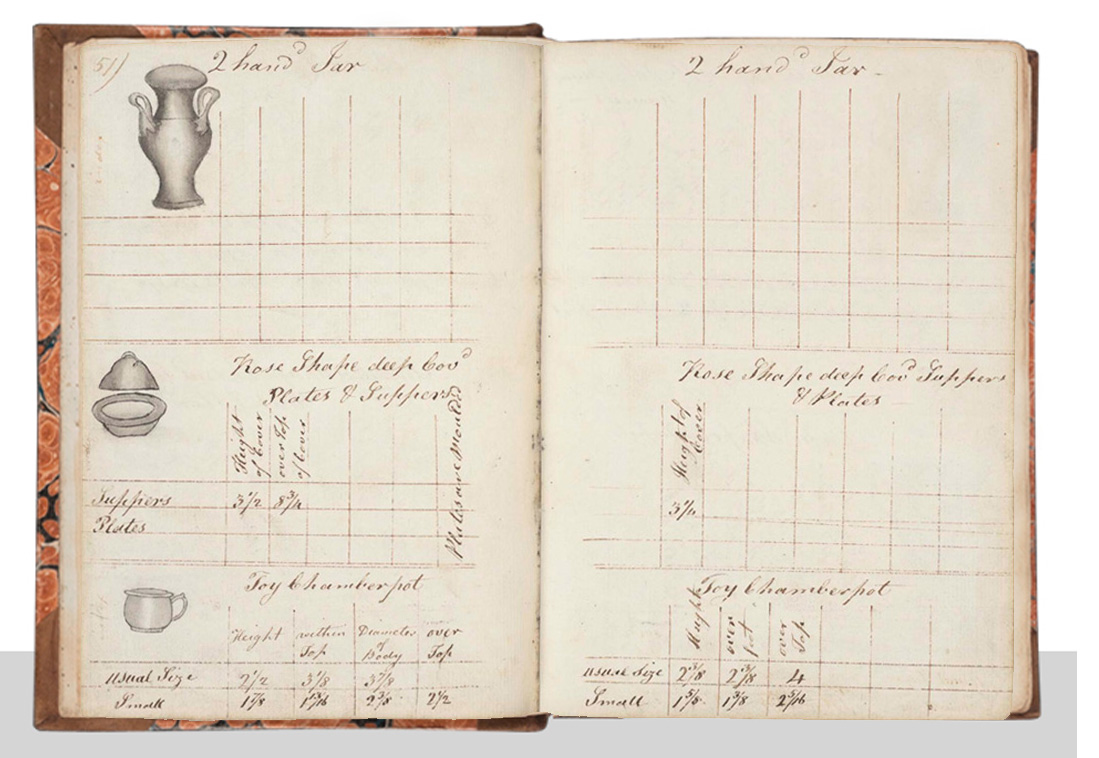 51)
2 hand^d Jar
Rose Shape deep Cov^d
Plates & Suppers
Height of Cover
over Top of Cover
Suppers 3 1/2 8 3/4
Plates
Toy Chamberpot
Height within Top Diameter of Body over Top
usual Size 2 1/2 3 1/8 3 7/8
Small 1 7/8 1 13/16 2 3/8 2 1/2
2 hand^d Jar
Rose Shape deep Cov^d Suppers
& Plates
Height of Cover
Toy Chamberpot
Height over foot over Top
usual Size 2 5/8 2 5/8 4
Small 1 5/8 1 3/8 2 5/16